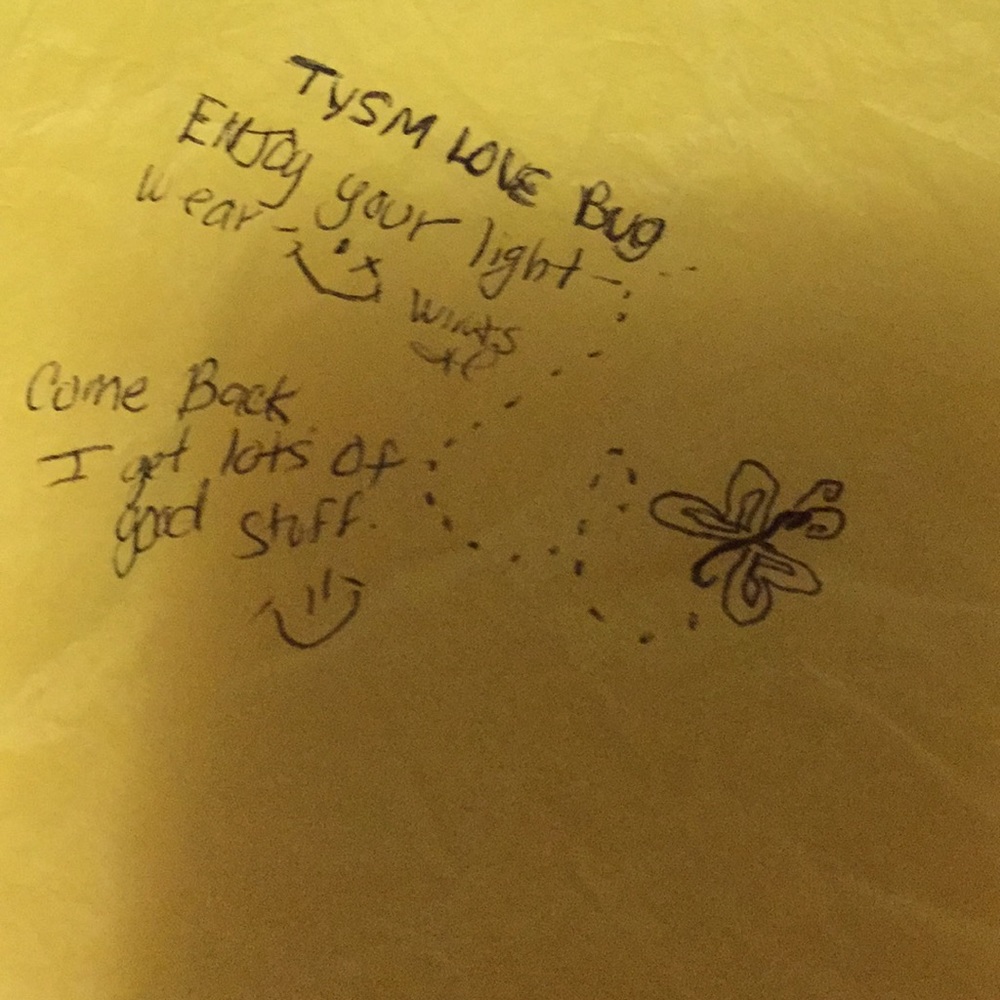 TYSM LOVE Bug
ENJOy your light-
wear-
Come Back
I get lots of
good stuff.